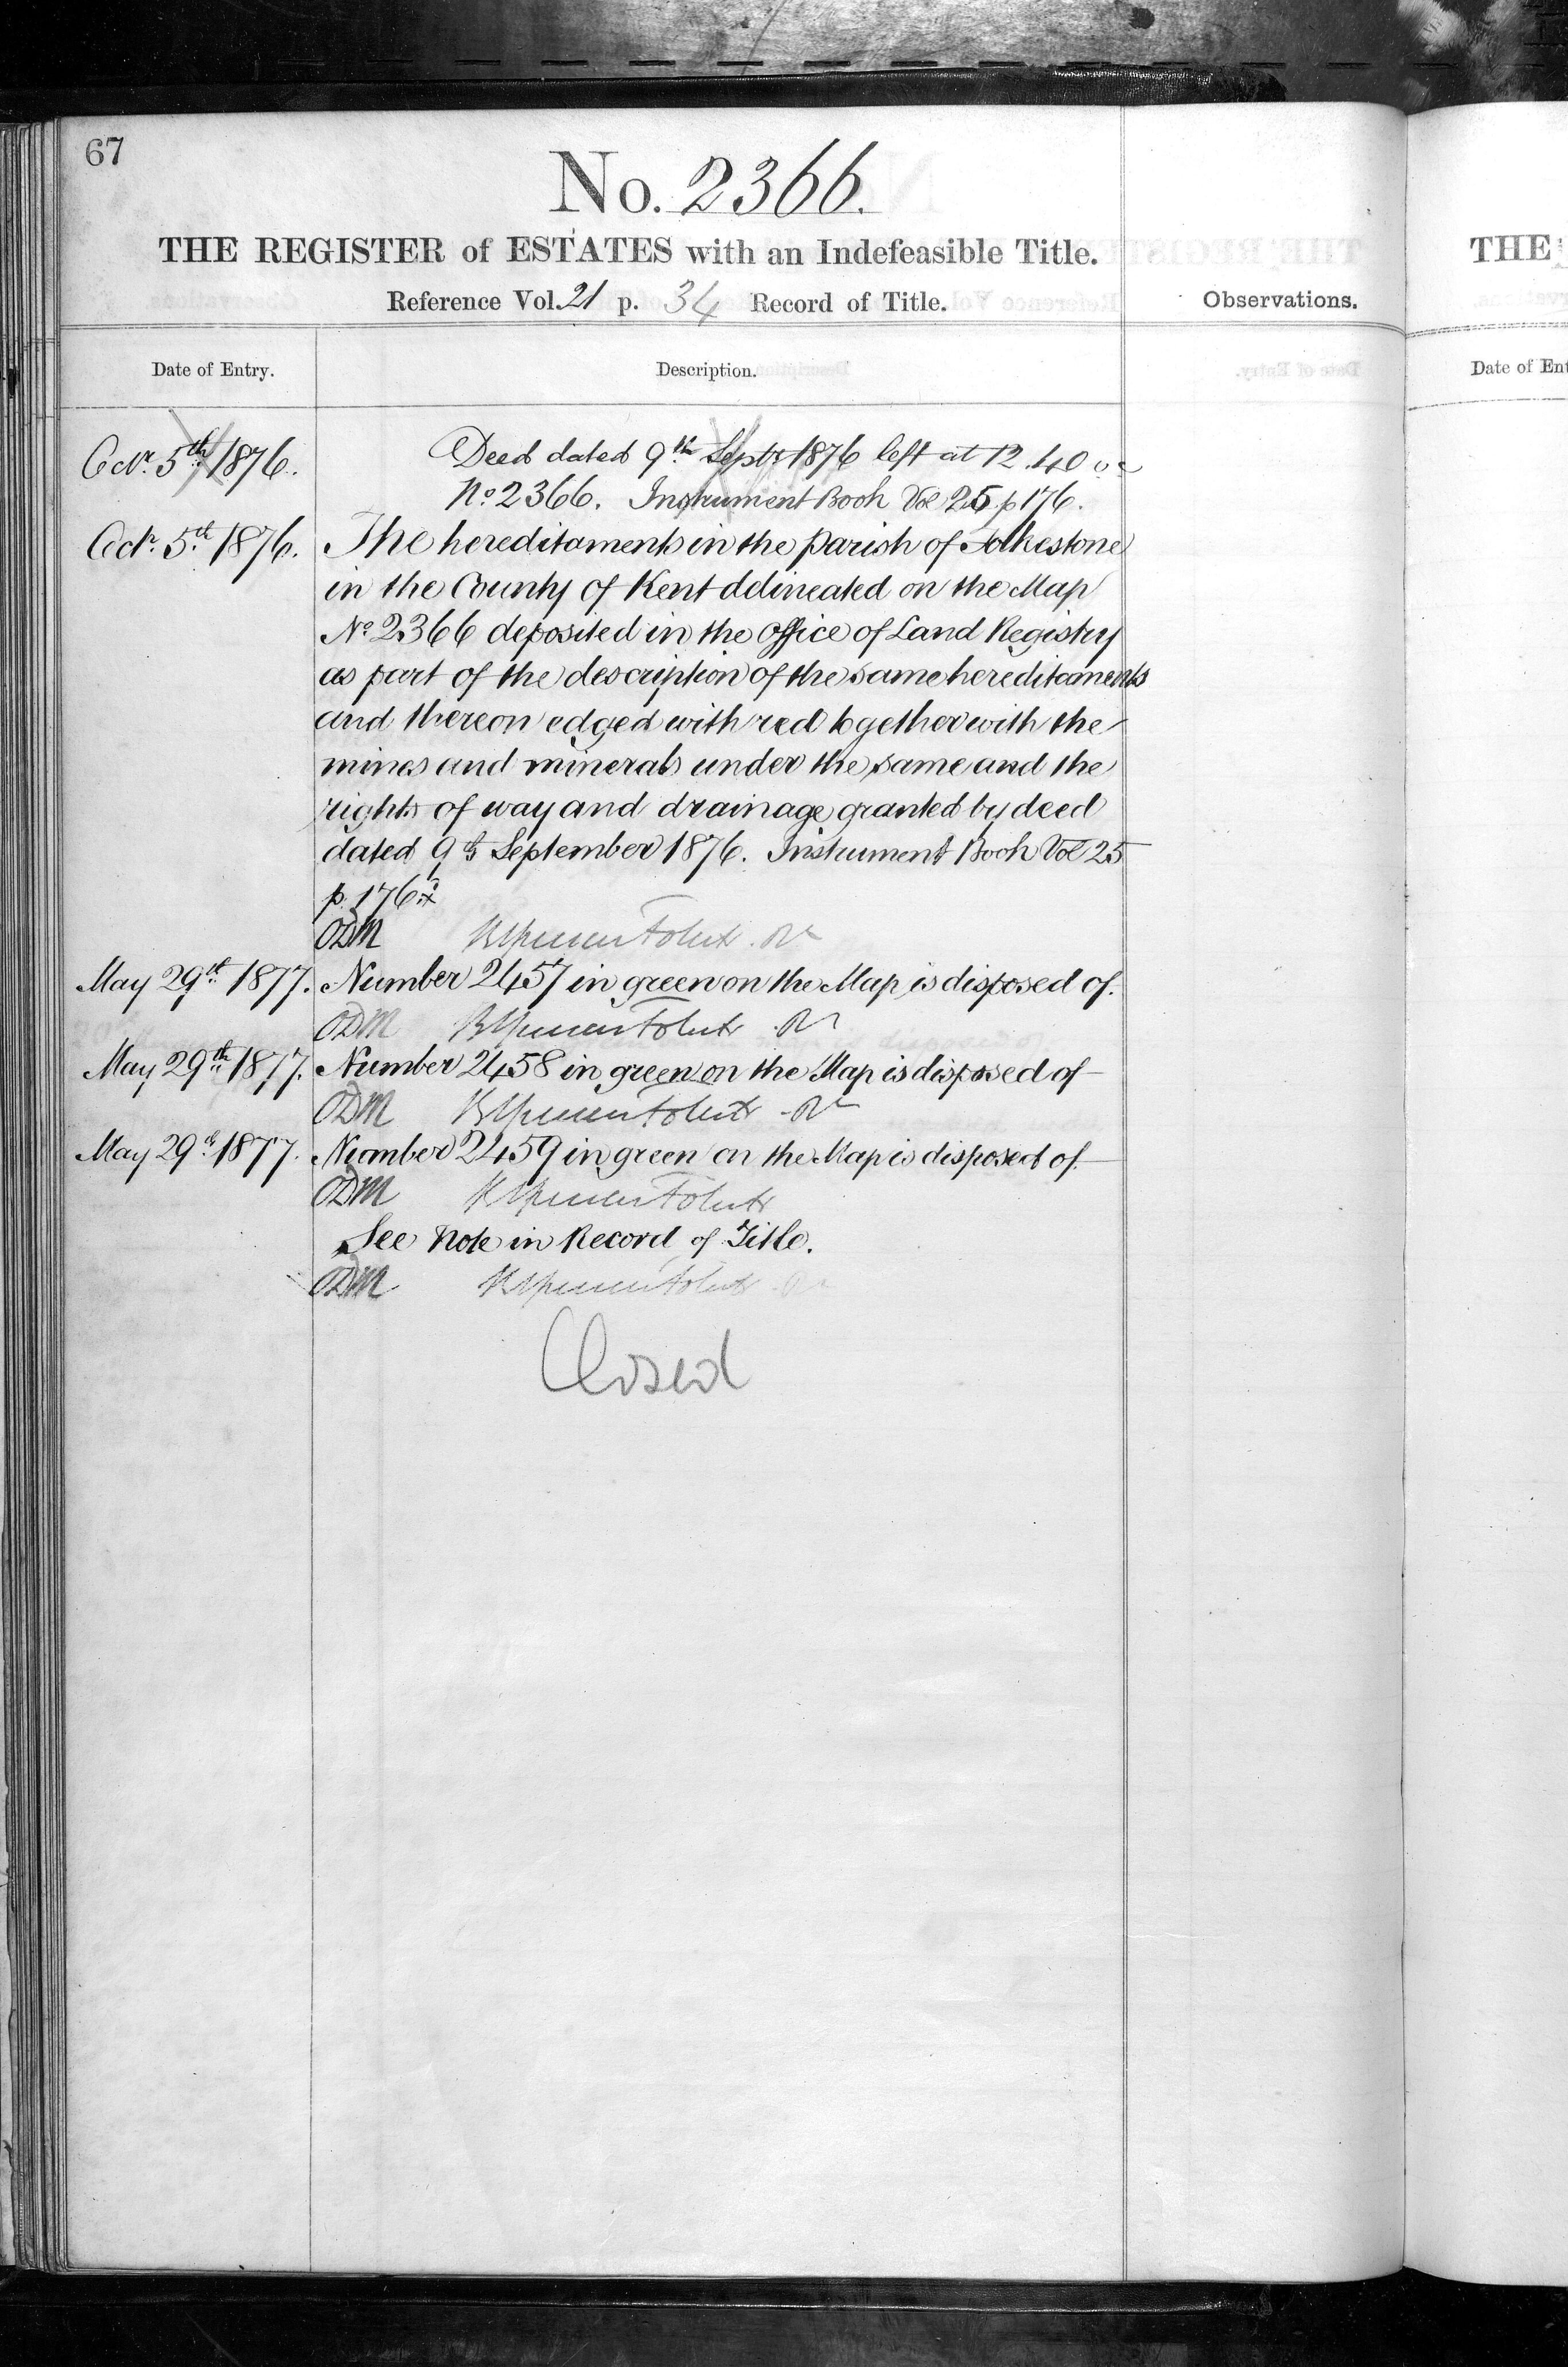 67
No. 2366.
THE REGISTER of ESTATES with an Indefeasible Title.
Reference Vol. 21 p. 34 Record of Title.
Observations.
Date of Entry.
Description.
Octr. 5th 1876.
Deed dated 9th Septr 1876 left at 12.40
No 2366. Instrument Book Vol 25 p 176.
Octr. 5th 1876. The hereditaments in the Parish of Folkestone
in the County of Kent delineated on the Map
No 2366 deposited in the Office of Land Registry
as part of the description of the same hereditaments
and thereon edged with red together with the
mines and minerals under the same and the
rights of way and drainage granted by deed
dated 9th September 1876. Instrument Book Vol 25
p. 176.
ODM
May 29th 1877. Number 2457 in green on the Map is disposed of.
ODM
May 29th 1877. Number 2458 in green on the Map is disposed of
ODM
May 29th 1877. Number 2459 in green on the Map is disposed of.
ODM
See Note in Record of Title.
ODM
Closed
THE
Date of Ent